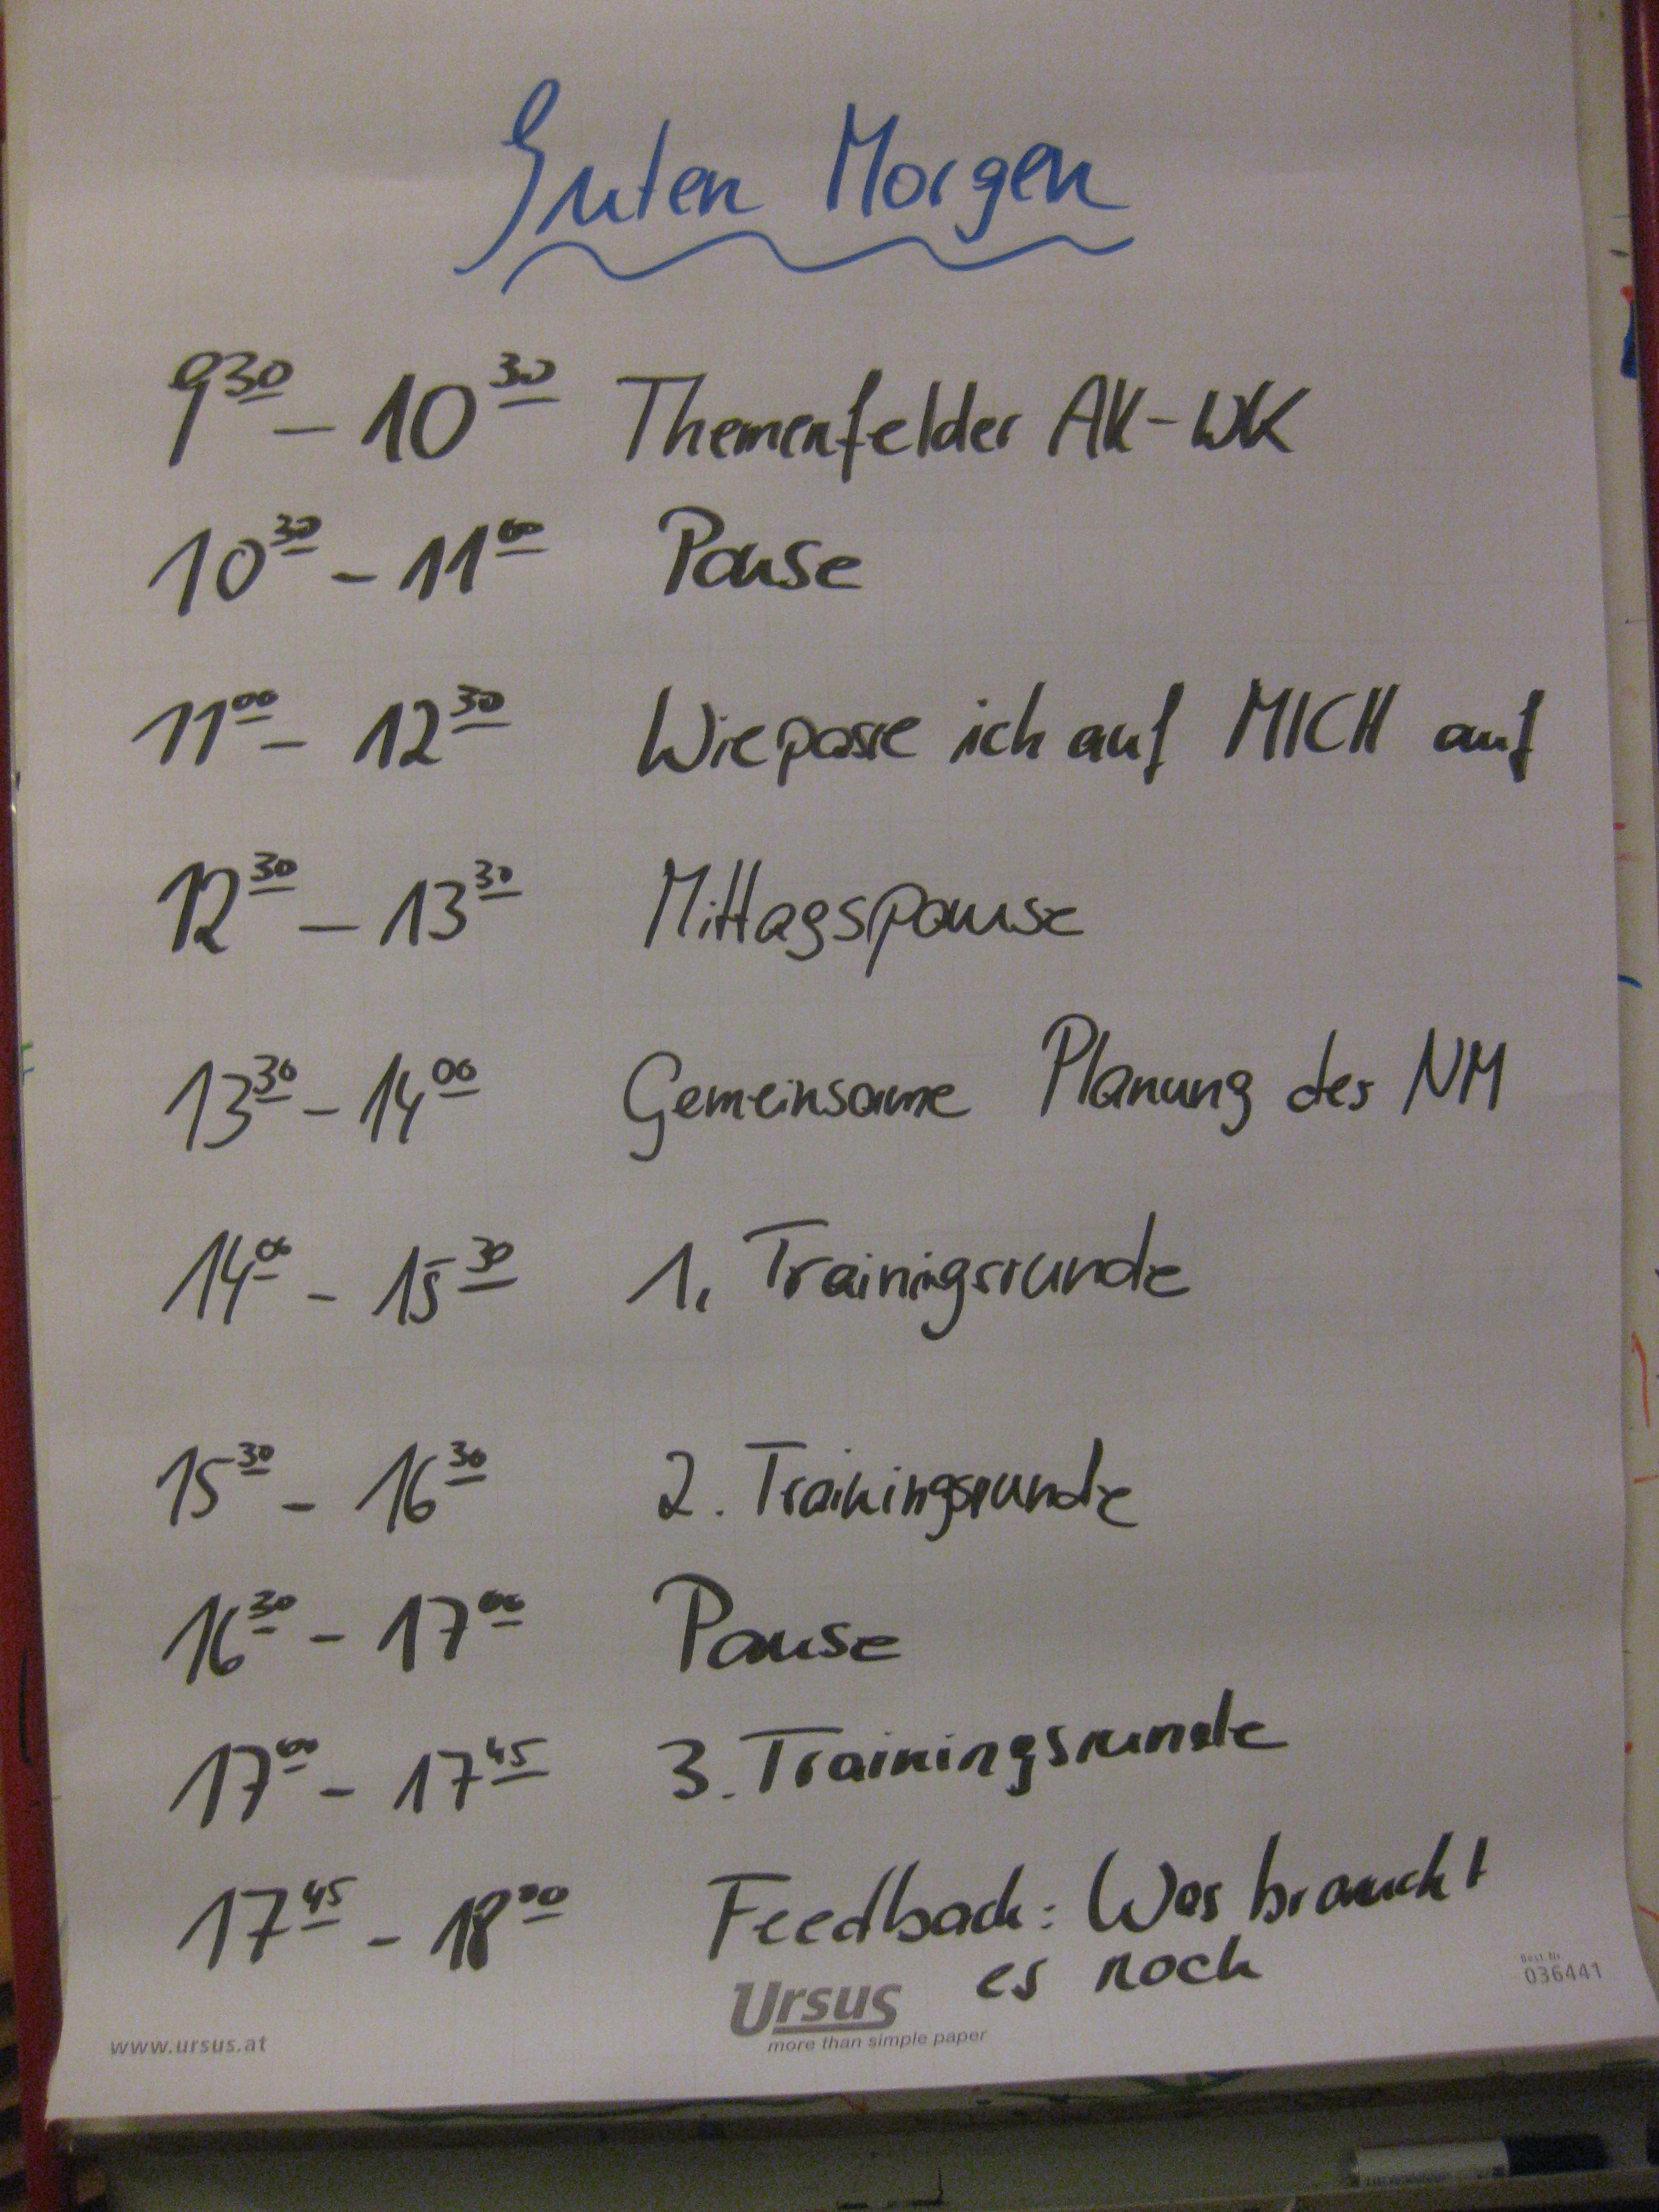 Guten Morgen
9 30 – 10 30 Themenfelder AK-WK
10 30 – 11 00 Pause
11 00 – 12 30 Wie passe ich auf MICH auf
12 30 – 13 30 Mittagspause
13 30 – 14 00 Gemeinsame Planung des NM
14 00 – 15 30 1. Trainingsrunde
15 30 – 16 30 2. Trainingsrunde
16 30 – 17 00 Pause
17 00 – 17 45 3. Trainingsrunde
17 45 – 18 00 Feedback: Was braucht
es noch
Best.Nr.
036441
Ursus
more than simple paper
www.ursus.at